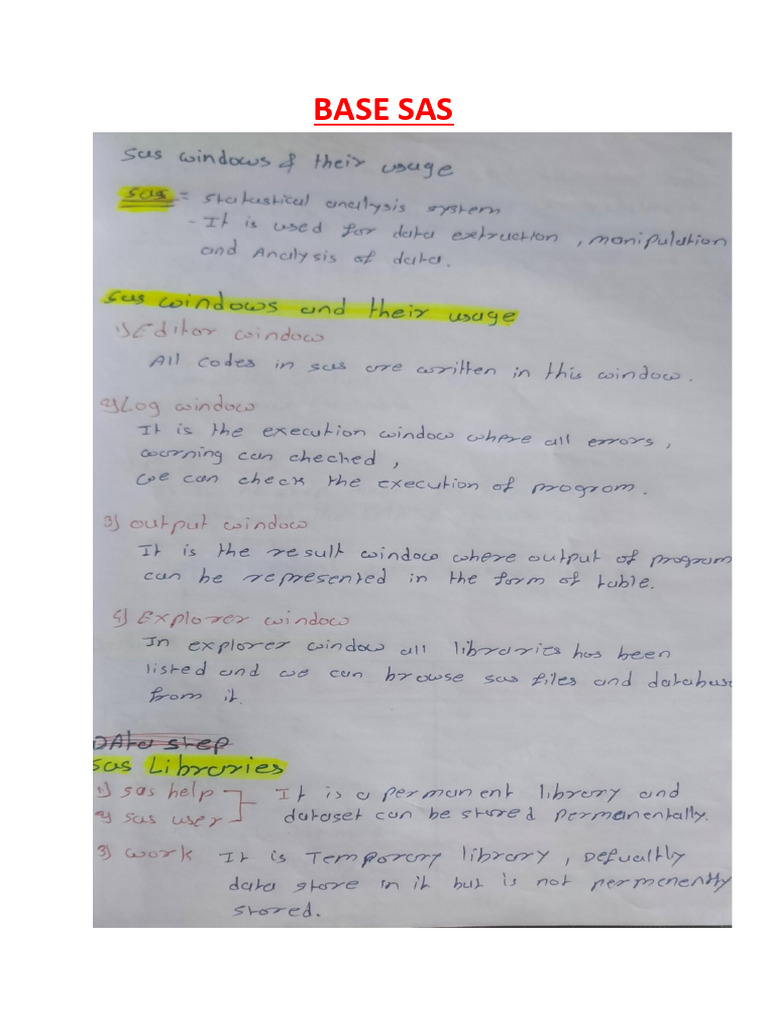 BASE SAS
sas windows & their usage
sas = statastical analysis system
- It is used for data extruction , manipulation
and Analysis of data.
sas windows and their usage
1) Editor window
All codes in sas are written in this window.
2) Log window
It is the execution window where all errors ,
worning can cheched ,
we can check the execution of program.
3) output window
It is the result window where output of program
can be represented in the form of table.
4) Explorer window
In explorer window all libraries has been
listed and we can browse sas files and database
from it.
DAta step
sas Libraries
1) sas help
It is a permanent library and
2) sas user
dataset can be stored permanentally.
3) work It is Temporary library , Defualtly
data store in it but is not permenently
stored.